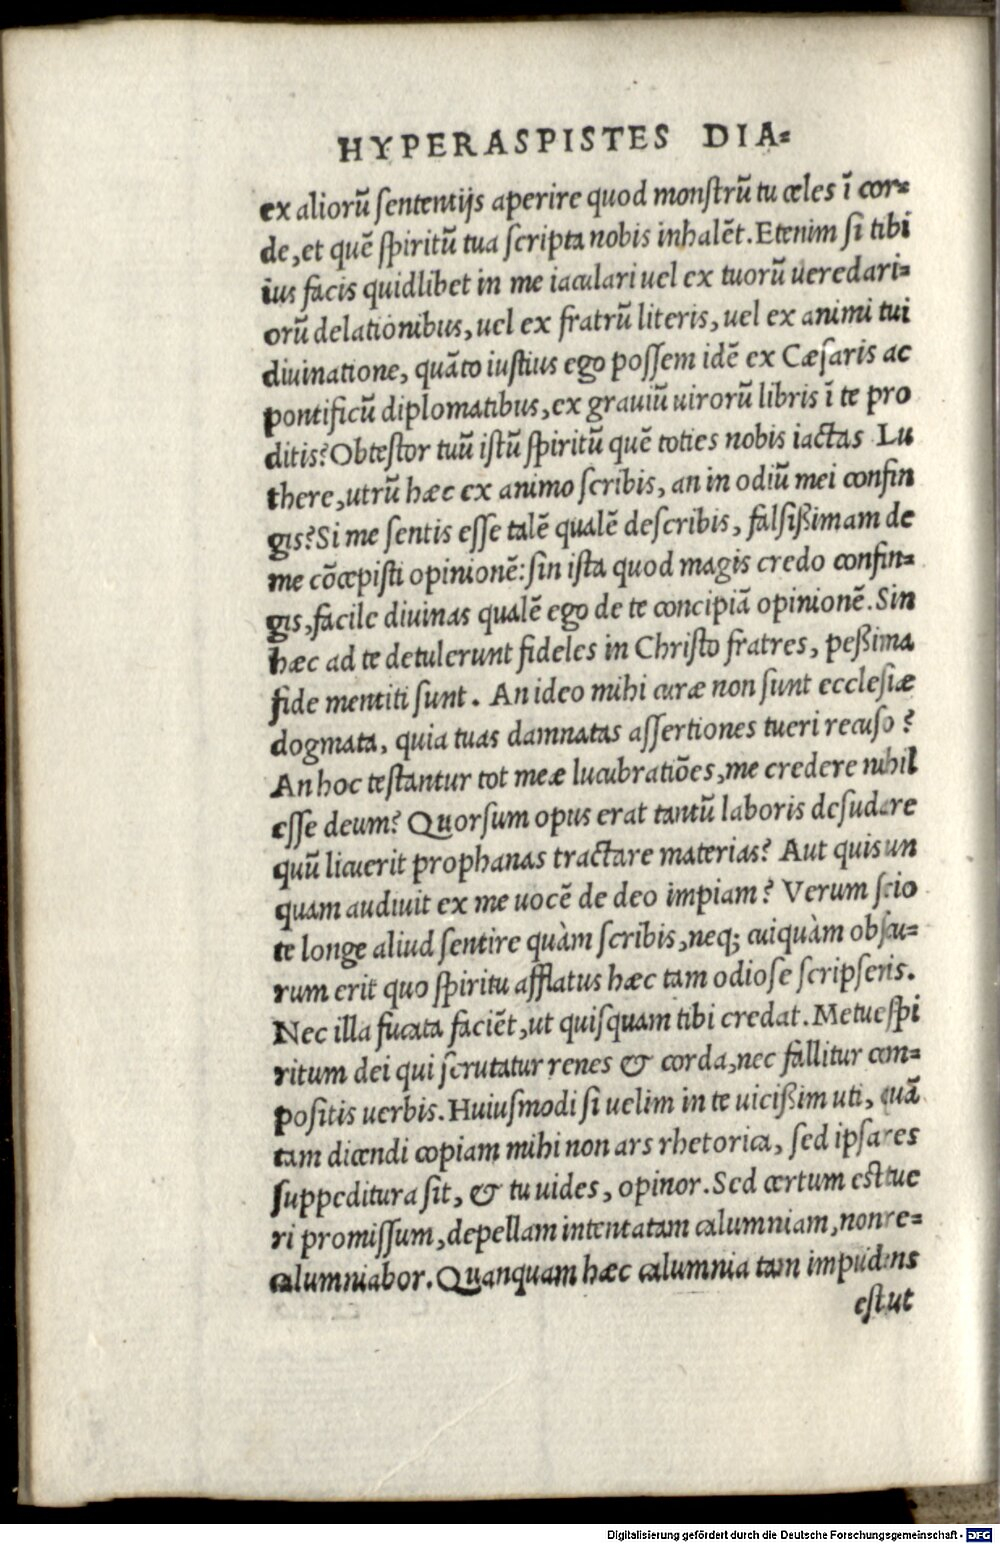 HYPERASPISTES DIA=
ex aliorū sententijs aperire quod monstrū tu celes ī cor=
de, et quē spiritū tua scripta nobis inhalēt. Etenim si tibi
ius facis quidlibet in me iaculari uel ex tuorū ueredari=
orū delationibus, uel ex fratrū literis, uel ex animi tui
diuinatione, quāto iustius ego possem idē ex Cæsaris ac
pontificū diplomatibus, ex grauiū uirorū libris ī te pro
ditis? Obtestor tuū istū spiritū quē toties nobis iactas Lu
there, utrū hæc ex animo scribis, an in odiū mei confin
gis? Si me sentis esse talē qualē describis, falsißimam de
me cōcepisti opinionē: sin ista quod magis credo confin=
gis, facile diuinas qualē ego de te concipiā opinionē. Sin
hæc ad te detulerunt fideles in Christo fratres, peßima
fide mentiti sunt. An ideo mihi curæ non sunt ecclesiæ
dogmata, quia tuas damnatas assertiones tueri recuso?
An hoc testantur tot meæ lucubratiōes, me credere nihil
esse deum? Quorsum opus erat tantū laboris desudare
quū licuerit prophanas tractare materias? Aut quis un
quam audiuit ex me uocē de deo impiam? Verum scio
te longe aliud sentire quàm scribis, neq; cuiquàm obscu=
rum erit quo spiritu afflatus hæc tam odiose scripseris.
Nec illa fucata faciēt, ut quisquam tibi credat. Metue spi
ritum dei qui scrutatur renes & corda, nec fallitur com=
positis uerbis. Huiusmodi si uelim in te uicißim uti, quā
tam dicendi copiam mihi non ars rhetorica, sed ipsa res
suppeditura sit, & tu uides, opinor. Sed certum est tue
ri promissum, depellam intentatam calumniam, non re=
calumniabor. Quanquam hæc calumnia tam impudens
est ut
Digitalisierung gefördert durch die Deutsche Forschungsgemeinschaft - DFG